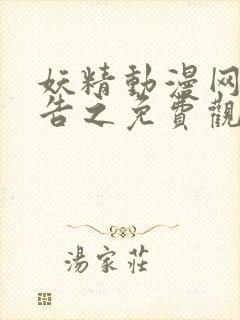 妖精動漫网
告之免費觀
湯家莊